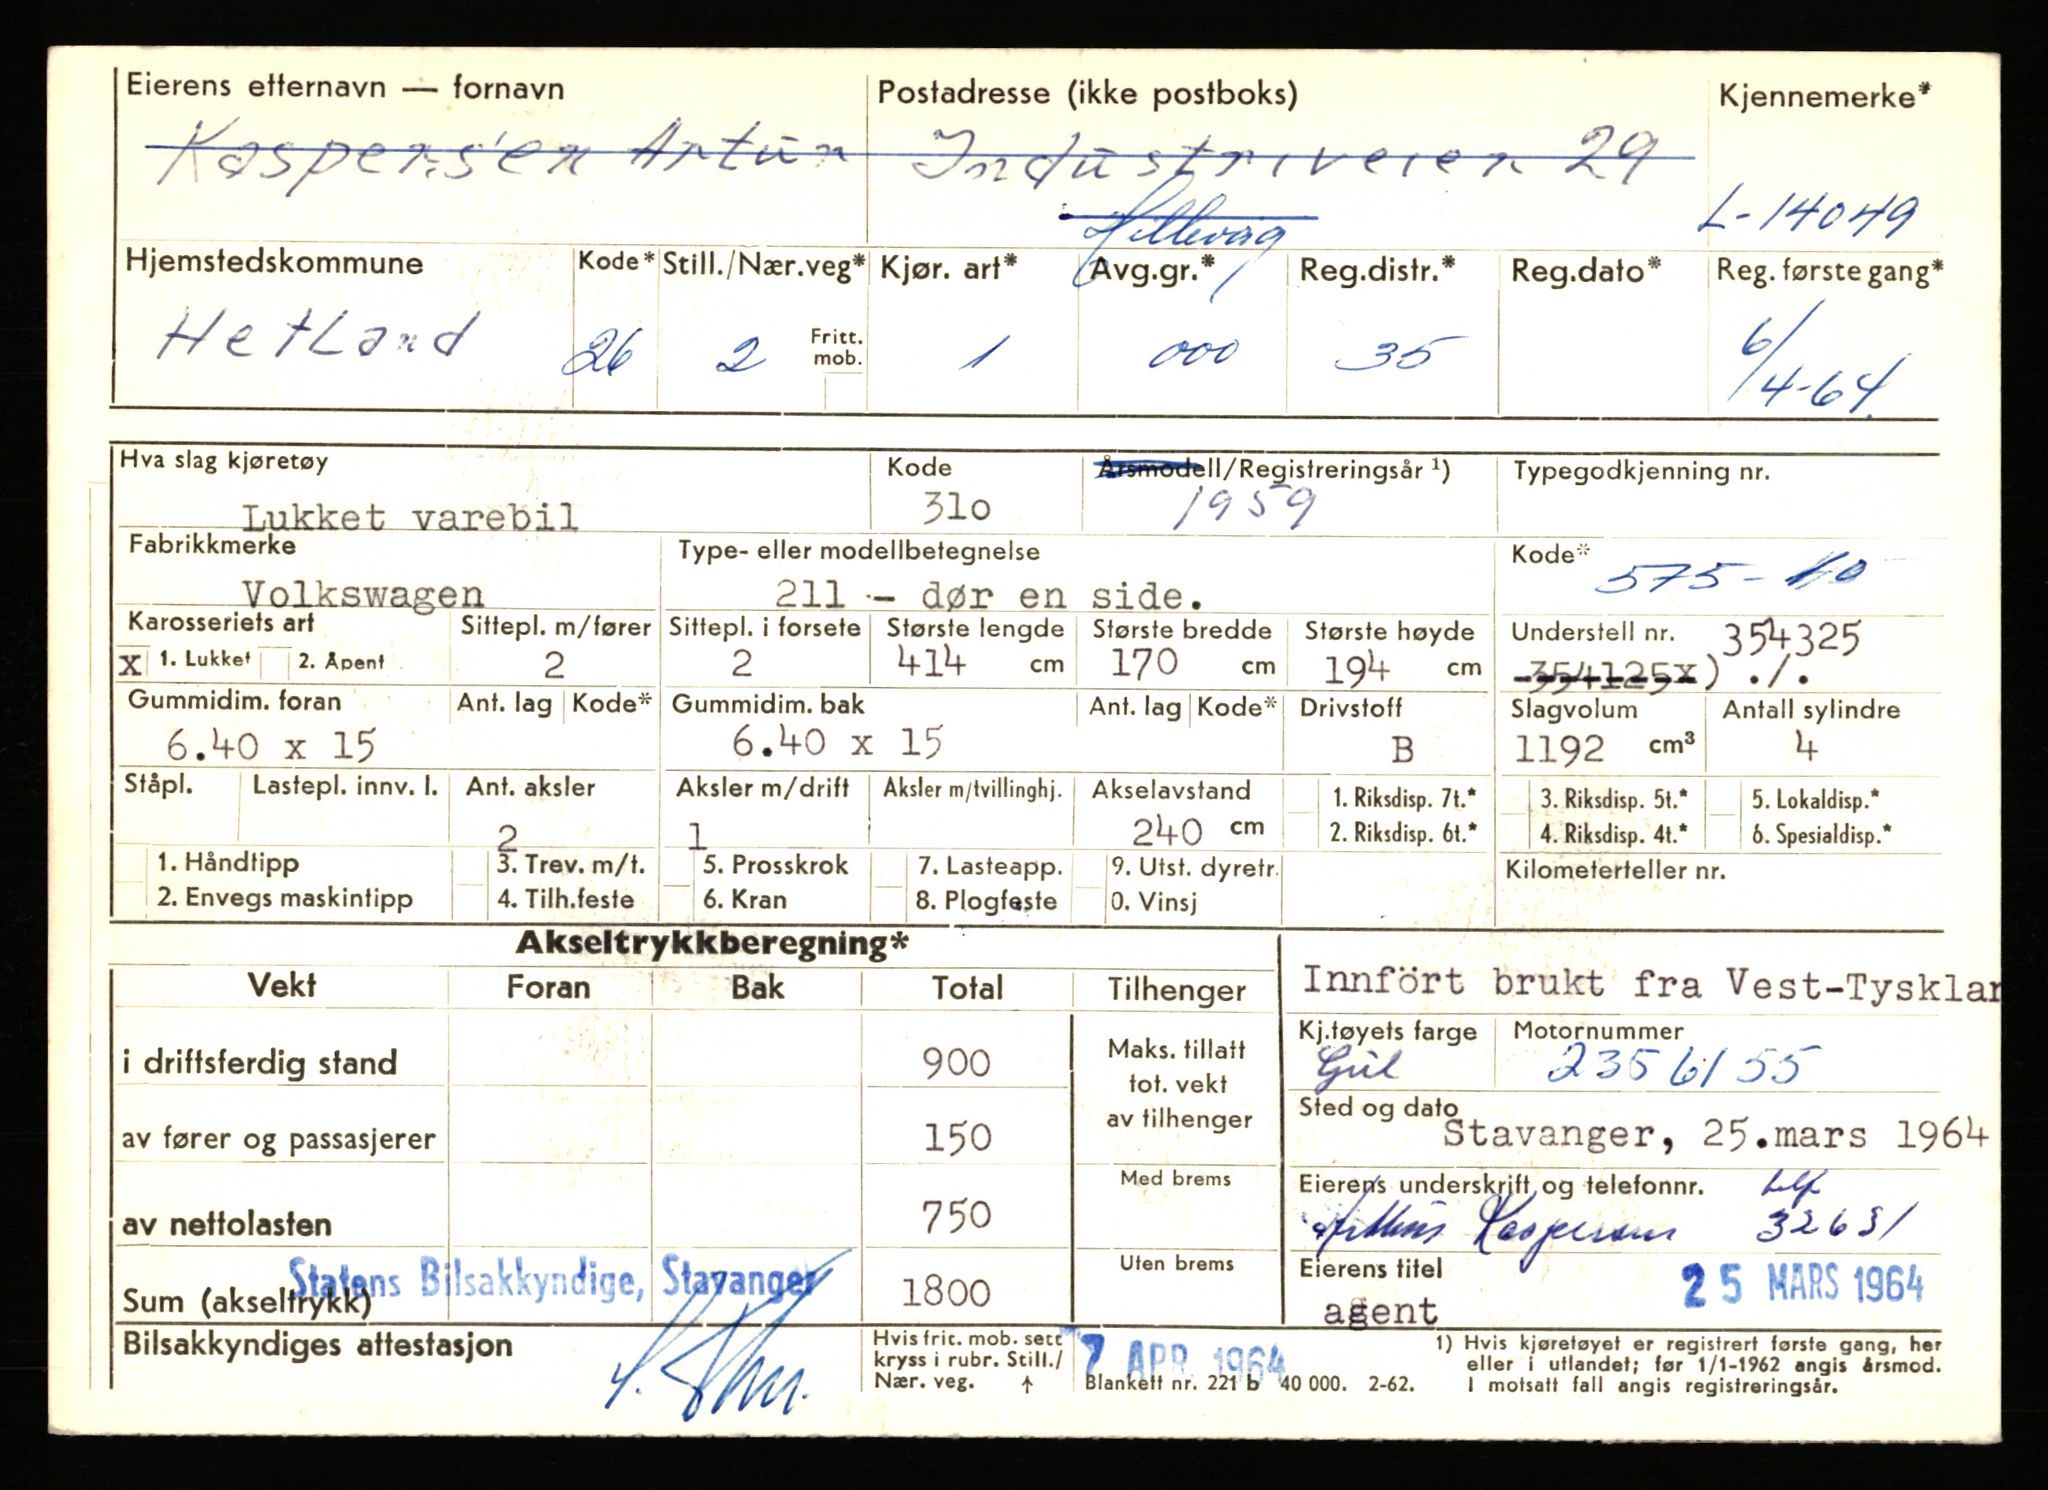 Eierens etternavn — fornavn Postadresse (ikke postboks) Kjennemerke*
Kaspersen Artur Industriveien 29
Hillevåg L-14049
Hjemstedskommune Kode* Still./Nær.veg* Kjør. art* Avg.gr.* Reg.distr.* Reg.dato* Reg. første gang*
Hetland 26 2 Fritt. mob. 1 000 35 6/4-64.
Hva slag kjøretøy Kode Årsmodell/Registreringsår ¹) Typegodkjenning nr.
Lukket varebil 310 1959
Fabrikkmerke Type- eller modellbetegnelse Kode*
Volkswagen 211 - dør en side. 575-10
Karosseriets art Sittepl. m/fører Sittepl. i forsete Største lengde Største bredde Største høyde Understell nr. 354325
X 1. Lukket 2. Åpent 2 2 414 cm 170 cm 194 cm 354125x) ./.
Gummidim. foran Ant. lag Kode* Gummidim. bak Ant. lag Kode* Drivstoff Slagvolum Antall sylindre
6.40 x 15 6.40 x 15 B 1192 cm³ 4
Ståpl. Lastepl. innv. l. Ant. aksler Aksler m/drift Aksler m/tvillinghj. Akselavstand 1. Riksdisp. 7t.* 3. Riksdisp. 5t.* 5. Lokaldisp.*
2 1 240 cm 2. Riksdisp. 6t.* 4. Riksdisp. 4t.* 6. Spesialdisp.*
1. Håndtipp 3. Trev. m/t. 5. Prosskrok 7. Lasteapp. 9. Utst. dyretr. Kilometerteller nr.
2. Envegs maskintipp 4. Tilh.feste 6. Kran 8. Plogfeste 0. Vinsj
Akseltrykkberegning*
Vekt Foran Bak Total Tilhenger Innfört brukt fra Vest-Tysklan
i driftsferdig stand 900 Maks. tillatt tot. vekt av tilhenger Kj.tøyets farge Motornummer
Gul 2356155
av fører og passasjerer 150 Sted og dato
Stavanger, 25.mars 1964
av nettolasten 750 Med brems Eierens underskrift og telefonnr. tlf
Arthur Kaspersen 32631
Statens Bilsakkyndige, Stavanger
Sum (akseltrykk) 1800 Uten brems Eierens titel 25 MARS 1964
agent
Bilsakkyndiges attestasjon Hvis frit. mob. sett kryss i rubr. Still./ Nær. veg. ↑ 7 APR. 1964
Blankett nr. 221 b 40 000. 2-62.
1) Hvis kjøretøyet er registrert første gang, her
eller i utlandet; før 1/1-1962 angis årsmod.
I motsatt fall angis registreringsår.